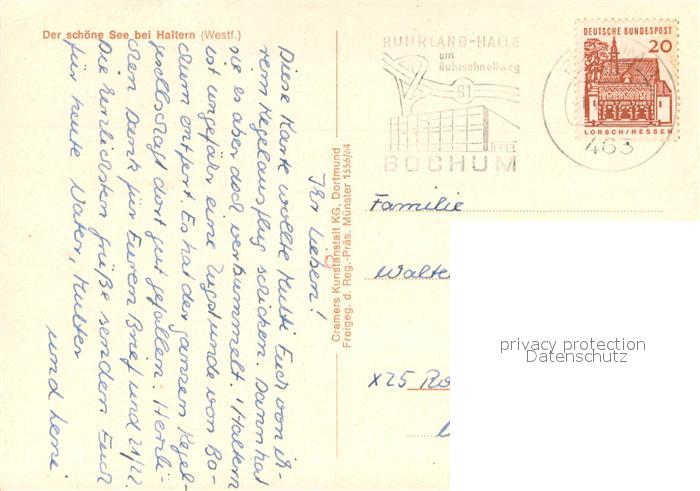 Der schöne See bei Haltern (Westf.)
Ihr Lieben!
Diese Karte wollte Mutti Euch von ih-
rem Kegelausflug schicken. Dann hat
sie es aber doch verbummelt. Haltern
ist ungefähr eine Zugstunde von Bo-
chum entfernt. Es hat der ganzen Kegel-
gesellschaft dort gut gefallen. Herzli-
chen Dank für Euren Brief und 21/22.
Die herzlichsten Grüße senden Euch
für heute Vater, Mutter
und Leni.
Cramers Kunstanstalt KG, Dortmund
Freigeg. d. Reg.-Präs. Münster 1556/64
RUHRLAND-HALLE
am
Ruhrschnellweg
B1
BOCHUM
463
DEUTSCHE BUNDESPOST
20
LORSCH/HESSEN
Familie
Walte
X25 Ro
privacy protection
Datenschutz